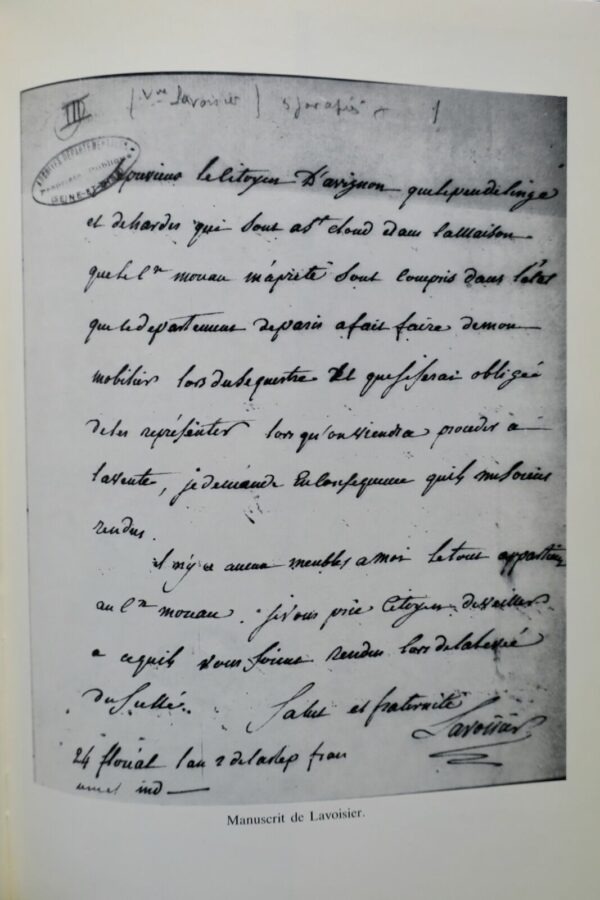 III (Vve Lavoisier)
ARCHIVES DÉPARTEMENTALES
SEINE-ET-OISE
le Citoyen D'avignon que le peu de linge
et de hardes qui sont a St cloud dans la Maison
que le Cen mouau m'a prêté sont compris dans l'etat
que le departement de paris a fait faire de mon
mobilier lors du sequestre Et que je serai obligée
de les représenter lors qu'on viendra proceder à
la vente, je demande En Consequence quils me soient
rendus.
il n'y a aucun meubles a moi le tout appartient
au Cen mouau. je vous prie Citoyen de veiller
a ce quils vous soient rendus lors de la levée
du Scellé. Salut et fraternité
Lavoisier
24 floréal l'an 2 de la rep fran
une et ind
Manuscrit de Lavoisier.